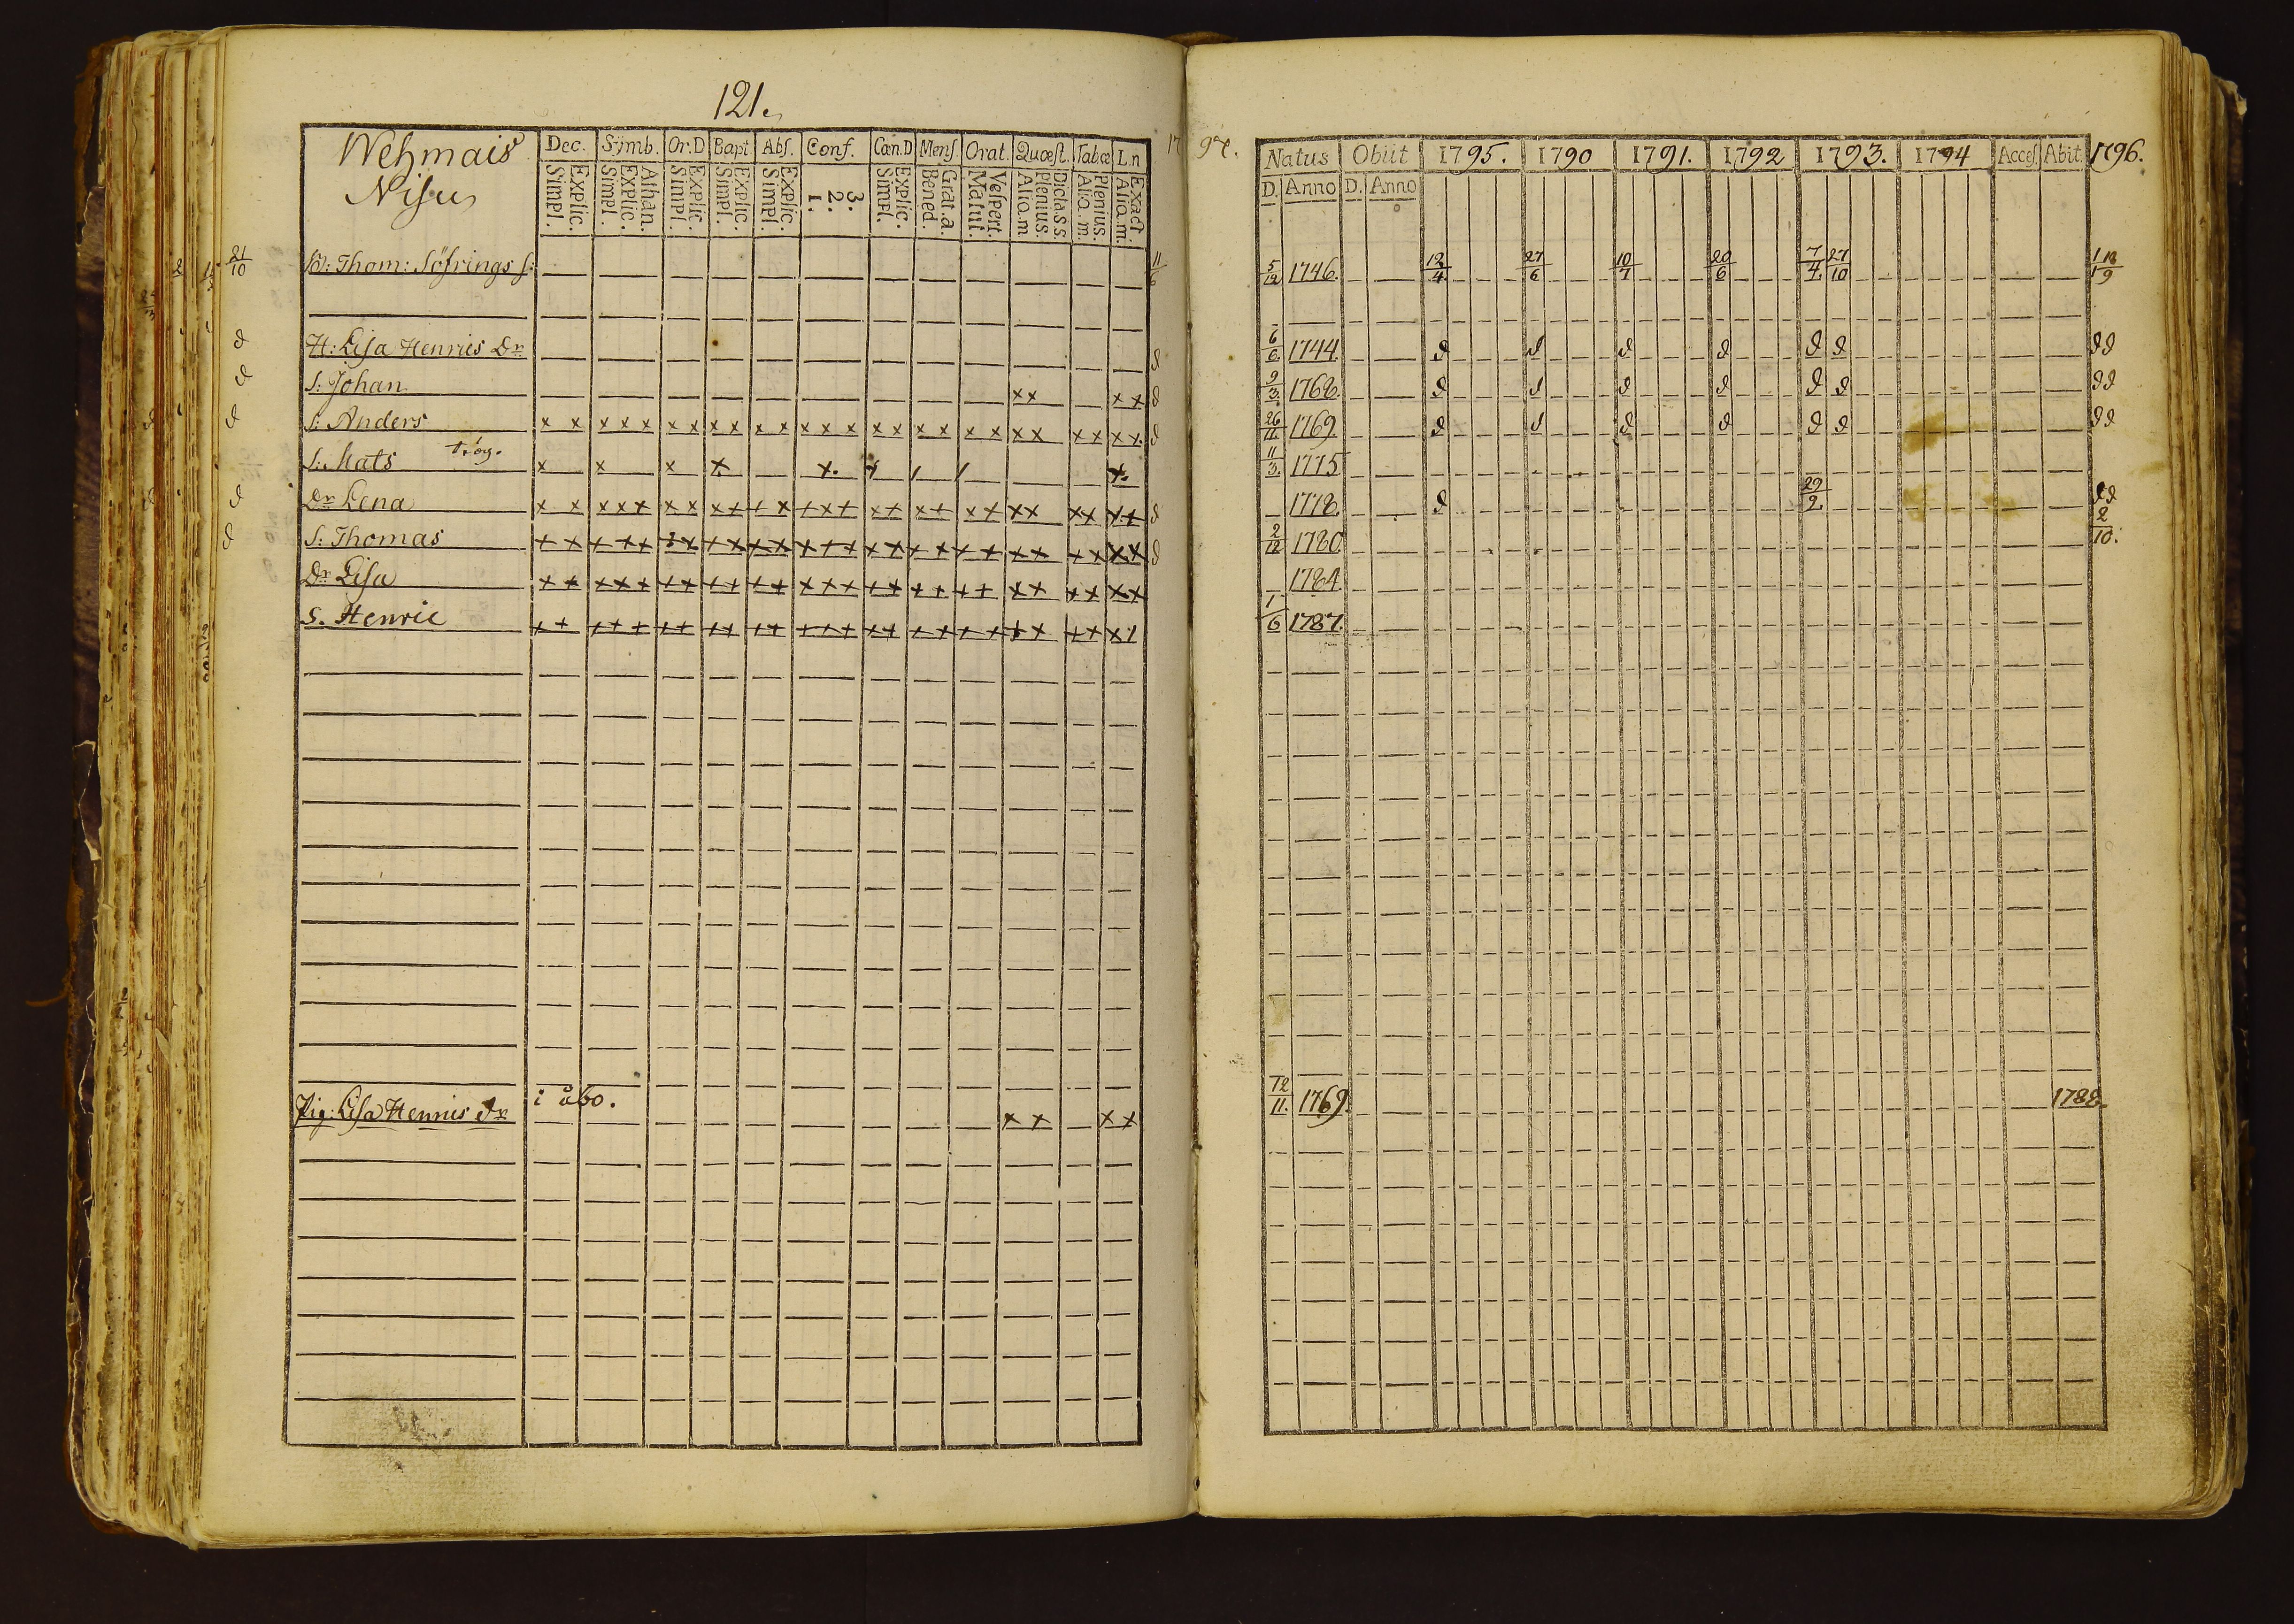 121.
Wehmais
Nisu
Dec. Symb. Or.D Bapt Abs. Conf. Cœn.D Mens. Orat. Quæst. Tabœ L.n
Simpl. Explic. Simpl. Explic. Athan. Simpl. Explic. Simpl. Explic. Simpl. Explic. 1. 2. 3. Simpl. Explic. Bened. Grat.a. Matut. Vespert. Alio.m Plenius. Dicta.s.s. Alio.m. Plenius. Alio.m. Exact.
21/10 Thom: Söfrings s: 11/6
d H: Lisa Henrics Dr d
d s: Johan x x x x d
d s: Anders x x x x x x x x x x x x x x x x x x x x x x x x x x d
s: Mats x x x x x. x.
d Dr Lena x x x x x x x x x + x + x + x + x + x x x x x x x + d
d s: Thomas d
Dr Lisa
s. Henric
Pig: Lisa Henrics dr i åbo. x x x x
1797.
Natus Obiit 1795. 1790 1791. 1792 1793. 1794 Acces. Abit. 1796.
D. Anno D. Anno
5/12 1746. 12/4 27/6 10/7 20/6 7/4 27/10
6/6 1744. d d d d d d d d
9/3. 1768. d d d d d d d d
26/11. 1769. d d d d d d d d
11/3. 1775
1778. d 29/9 d d
2/12 1780 2/10.
1784.
1/6 1787.
12/11. 1769. 1788.